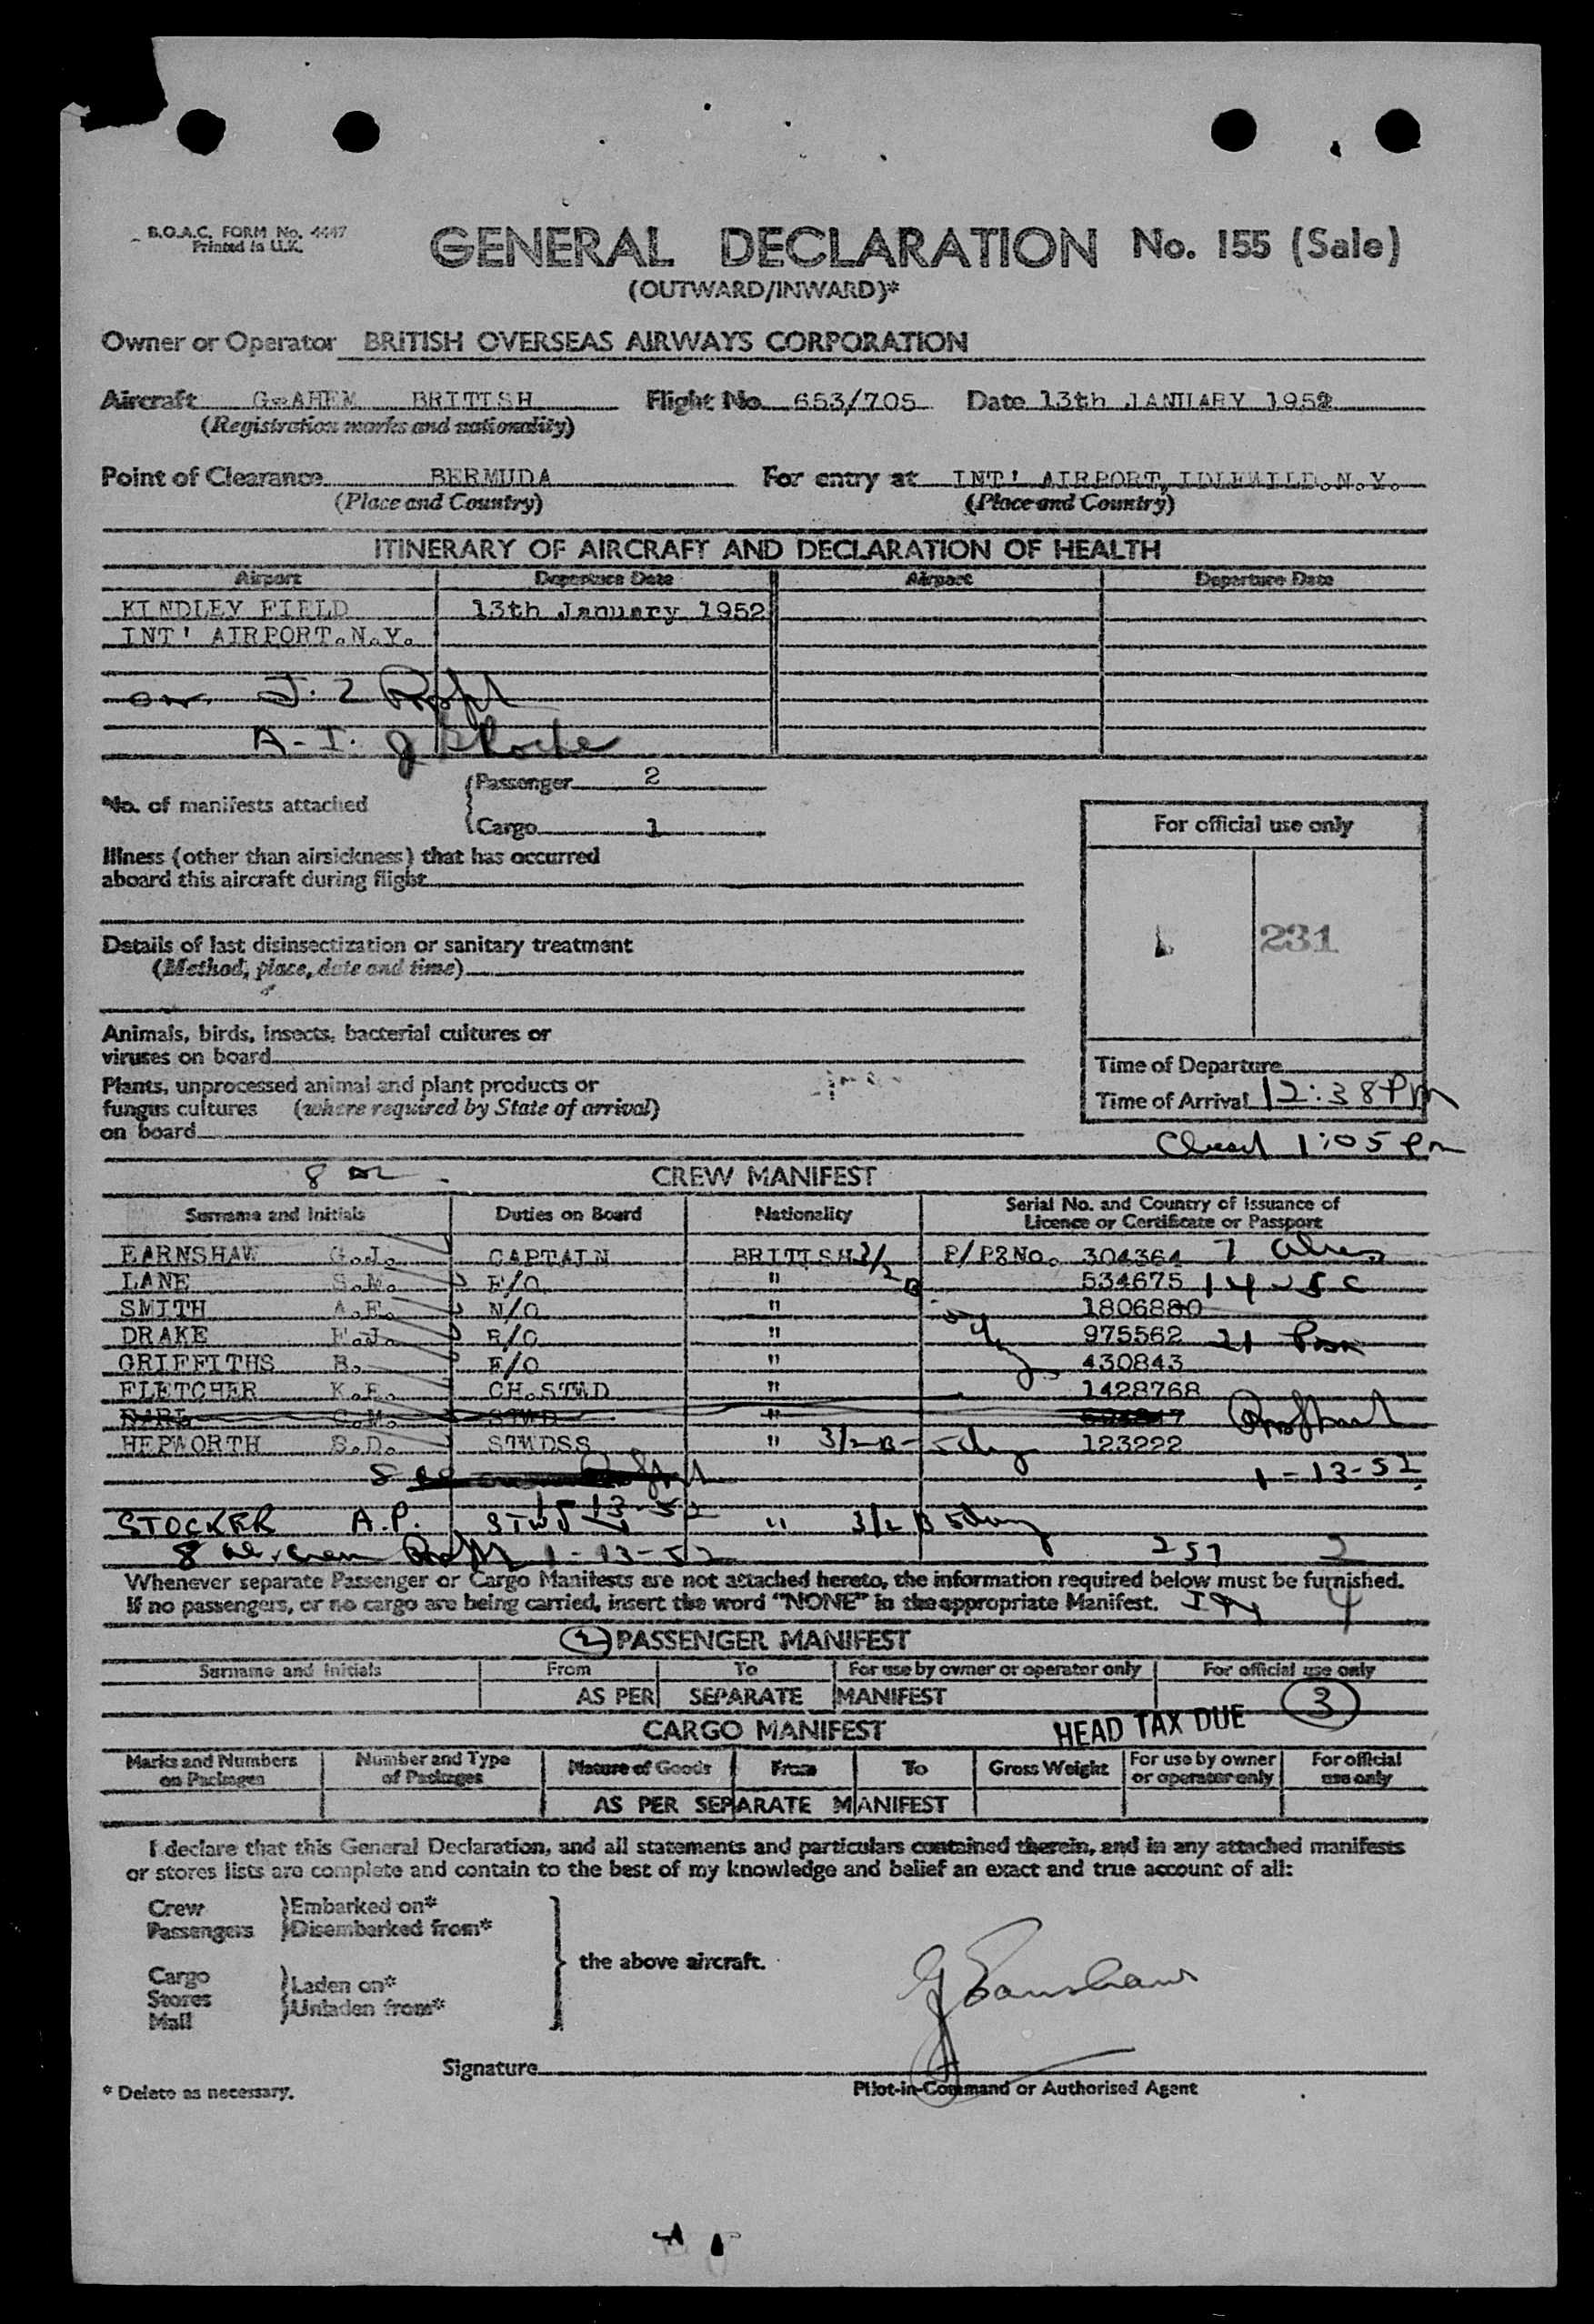 B.O.A.C. FORM No. 4447
Printed in U.K.
GENERAL DECLARATION No. 155 (Sale)
(OUTWARD/INWARD)*
Owner or Operator BRITISH OVERSEAS AIRWAYS CORPORATION
Aircraft G-AHEM BRITISH Flight No. 653/705 Date 13th JANUARY 1952
(Registration marks and nationality)
Point of Clearance BERMUDA For entry at INT' AIRPORT, IDLEWILD.N.Y.
(Place and Country) (Place and Country)
ITINERARY OF AIRCRAFT AND DECLARATION OF HEALTH
Airport Departure Date Airport Departure Date
KINDLEY FIELD 13th January 1952
INT' AIRPORT.N.Y.
J. 2
A-I.
No. of manifests attached
Passenger 2
Cargo 1
For official use only
Illness (other than airsickness) that has occurred
aboard this aircraft during flight
231
Details of last disinsectization or sanitary treatment
(Method, place, date and time)
Animals, birds, insects, bacterial cultures or
viruses on board
Time of Departure
Plants, unprocessed animal and plant products or
fungus cultures (where required by State of arrival)
on board
Time of Arrival 12:38 PM
1:05 Pm
8
CREW MANIFEST
Surname and Initials Duties on Board Nationality Serial No. and Country of Issuance of
Licence or Certificate or Passport
EARNSHAW G.J. CAPTAIN BRITISH 3/2 B P/PRNo. 304364 7
LANE S.M. F/O " 534675 14
SMITH A.E. N/O " 1806880
DRAKE F.J. R/O " 975562 21
GRIFFITHS B. E/O " 430843
FLETCHER K.R. CH.STWD " 1428768
EARL C.M. STWD "
HEPWORTH S.D. STWDSS " 3/2 B- 123222
8 1-13-52
1-13-52
STOCKER A.P. STWD " 3/2 B
8 1-13-52 257 2
Whenever separate Passenger or Cargo Manifests are not attached hereto, the information required below must be furnished.
If no passengers, or no cargo are being carried, insert the word "NONE" in the appropriate Manifest. 4
2 PASSENGER MANIFEST
Surname and Initials From To For use by owner or operator only For official use only
AS PER SEPARATE MANIFEST 3
CARGO MANIFEST HEAD TAX DUE
Marks and Numbers on Packages Number and Type of Packages Nature of Goods From To Gross Weight For use by owner or operator only For official use only
AS PER SEPARATE MANIFEST
I declare that this General Declaration, and all statements and particulars contained therein, and in any attached manifests
or stores lists are complete and contain to the best of my knowledge and belief an exact and true account of all:
Crew Embarked on*
Passengers Disembarked from*
the above aircraft.
Cargo Laden on*
Stores Unladen from*
Mail
GJ Earnshaw
Signature
* Delete as necessary. Pilot-in-Command or Authorised Agent